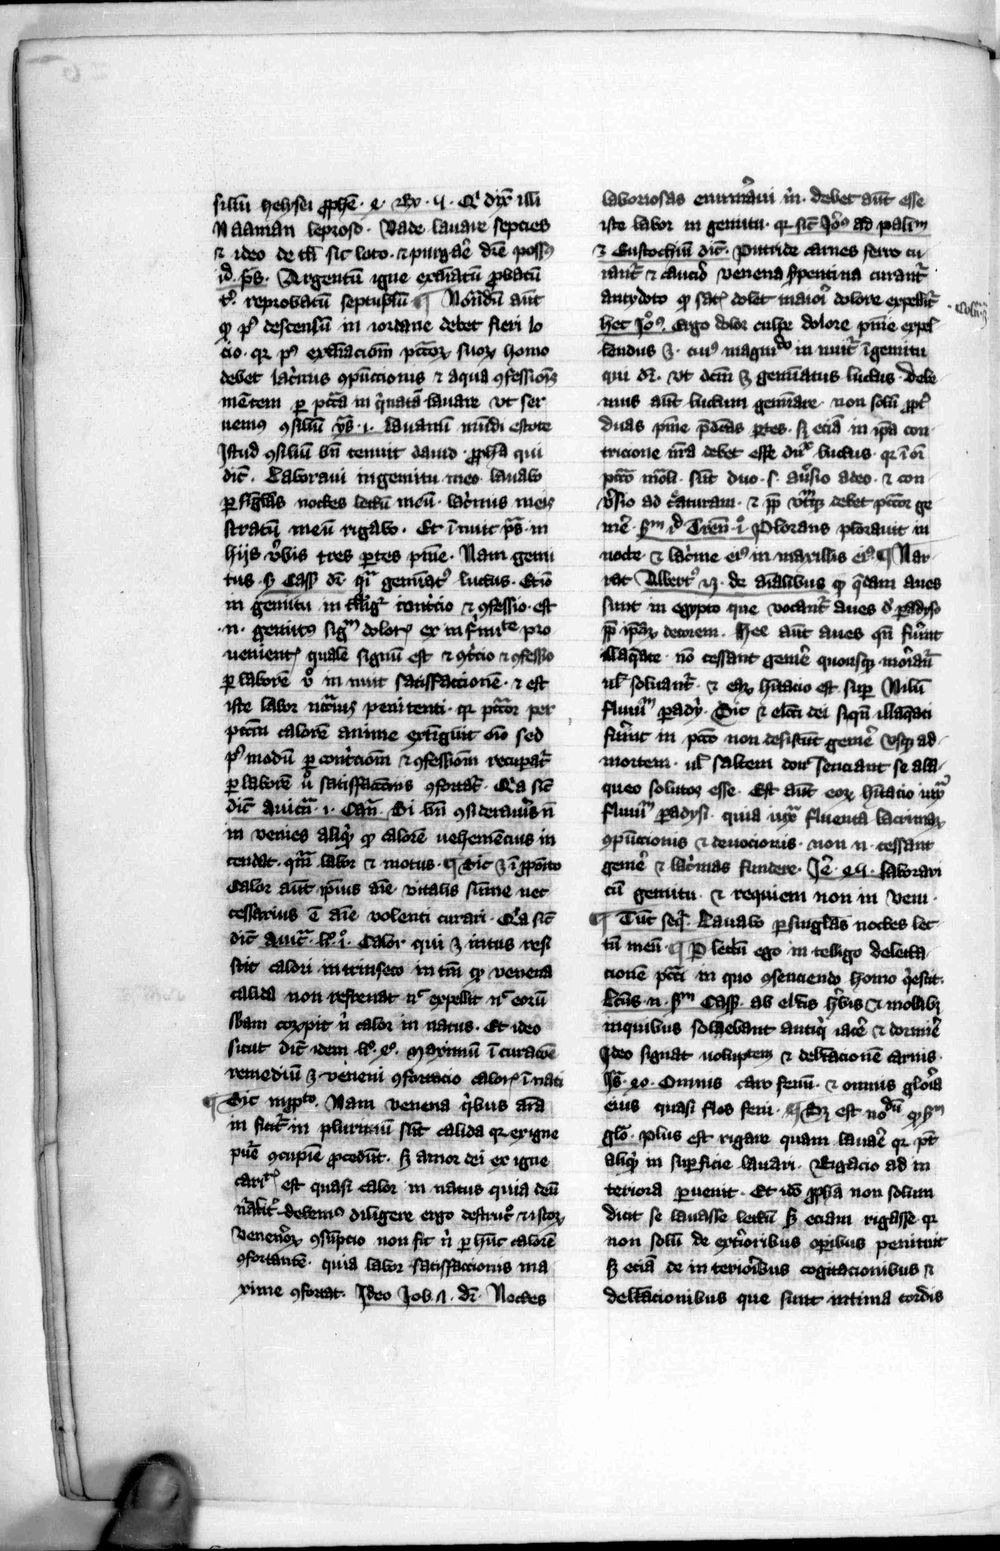 silium helysei prophe. 4. Reg. 5. Qui dixit illi
Naaman leproso. Vade lavare septies
et ideo de tali sic loto. et purgato dicere possumus
id ps. Argentum igne examinatum probatum
terre reprobatum septuplum ¶ Notandum autem
quod post descensum in iordane debet fieri lo
cio. quia post examinacionem peccatorum suorum homo
debet lacrimis conpunctionis et aqua confessionis
mentem per peccata inquinatam lavare ut ser
vemus consilium ys. i. Lavamini mundi estote
Istud consilium bene tenuit david propheta qui
dicit. Laboravi in gemitu meo lavabo
per singulas noctes lectum meum. lacrimis meis
stratum meum rigabo. Et innuit ps. in
hijs verbis tres partes penitentie. Nam gemi
tus secundum Cass dicitur quasi geminatus luctus. Et ideo
in gemitu intelligitur contricio et confessio. est
.n. gemitus signum doloris ex infirmitate pro
venientis quale signum est et contricio et confessio
per laborem vero innuit satisfaccionem. et est
iste labor necessarius penitenti. quia peccator per
peccatum calorem anime extinguit omnino sed
post modum per contricionem et confessionem recuperatur
per laborem vero satisfaccionis confortatur. Quia sicut
dicit avicenna. i. Can. Si bene consideraveris non
invenies aliquid quod calorem vehemencius in
tendat. quam labor et motus. ¶ Sic est in proposito
Calor autem ipsius anime vitalis summe nec
cessarius est anime volenti curari. Quia sicut
dicit avicenna. li. i. Calor qui est intus resi
stit calori intrinseco in tantum quod venena
calida non refrenat nec expellit nec eorum
sbam corrumpit nisi calor innatus. Et ideo
sicut dicit idem li. 4. maximum in curacione
remedium est veneni confortacio caloris innati
¶ Sic in proposito. Nam venena quibus anima
inficitur in plurimum sunt calida quia ex igne
prave concupiscencie procedunt. sed amor dei ex igne
caritatis est quasi calor innatus quia deum
naturaliter debemus diligere ergo destructio et istorum
venenorum consumpcio non fit nisi per hunc calorem
confortante. quia labor satisfaccionis ma
xime confortat. Ideo Job. 7. dicitur. Noctes
laboriosas enumeravi michi. debet autem esse
iste labor in gemitu. quia sicut Jero. ad palim
et Eustochium dicit. Putride carnes ferro cu
rantur et cauterio venena serpentina curantur
antydoto quod satis dolet maiori dolore expellitur
hec Jero. Ergo dolor culpe dolore pene expel
lendus est. cuius magnitudo innuitur in gemitu
qui dicitur. ut dictum est geminatus luctus. debe
mus autem luctum geminare. non solum propter
duas penitentie predictas partes. sed eciam in ipsa con
tricione nostra debet esse duplex luctus. quia in omni
peccato mortali. sunt duo. s. aversio a deo. et con
versio ad creaturam. et propter utrumque debet peccator ge
mere. secundum illud Tren. i. Plorans ploravit in
nocte et lacrime eius in maxillis eius ¶ Nar
rat Albertus 23. de animalibus quod quedam aves
sunt in egypto que vocantur aves de paradyso
propter ipsarum decorem. Hee autem aves quando fuerint
illaqueate. non cessant gemere quousque moriantur
vel solvantur. et earum habitacio est super Nilum
fluvium paradysi. Sic et electi dei siquando illaqueati
fuerint in peccato non desistunt gemere usque ad
mortem. vel saltem donec senciant se a la
queo solutos esse. Est autem eorum habitacio iuxta
fluvium paradysi. quia iuxta fluenta lacrimarum
conpunctionis et devocionis. non .n. cessant
gemere et lacrimas fundere. Jere. 45. laboravi
cum gemitu. et requiem non inveni.
¶ Tunc sequitur. Lavabo per singulas noctes lec
tum meum. ¶ Per lectum ego intelligo delecta
cionem peccati in quo consenciendo homo quiescit.
Lectus .n. secundum Cass. ab electis herbis et mollibus
in quibus solebant antiqui iacere et dormire
Ideo signat voluptatem et delectacionem carnis.
Isa. 40. Omnis caro fenum. et omnis gloria
eius quasi flos feni. ¶ Sed est notandum quod secundum
glo. Plus est rigare quam lavare quia potest
aliquid in superficie lavari. Rigacio ad in
teriora pervenit. Et ideo propheta non solum
dicit se lavasse lectum sed eciam rigasse quia
non solum de exterioribus operibus penituit
sed eciam de interioribus cogitacionibus et
delectacionibus que sunt intima cordis